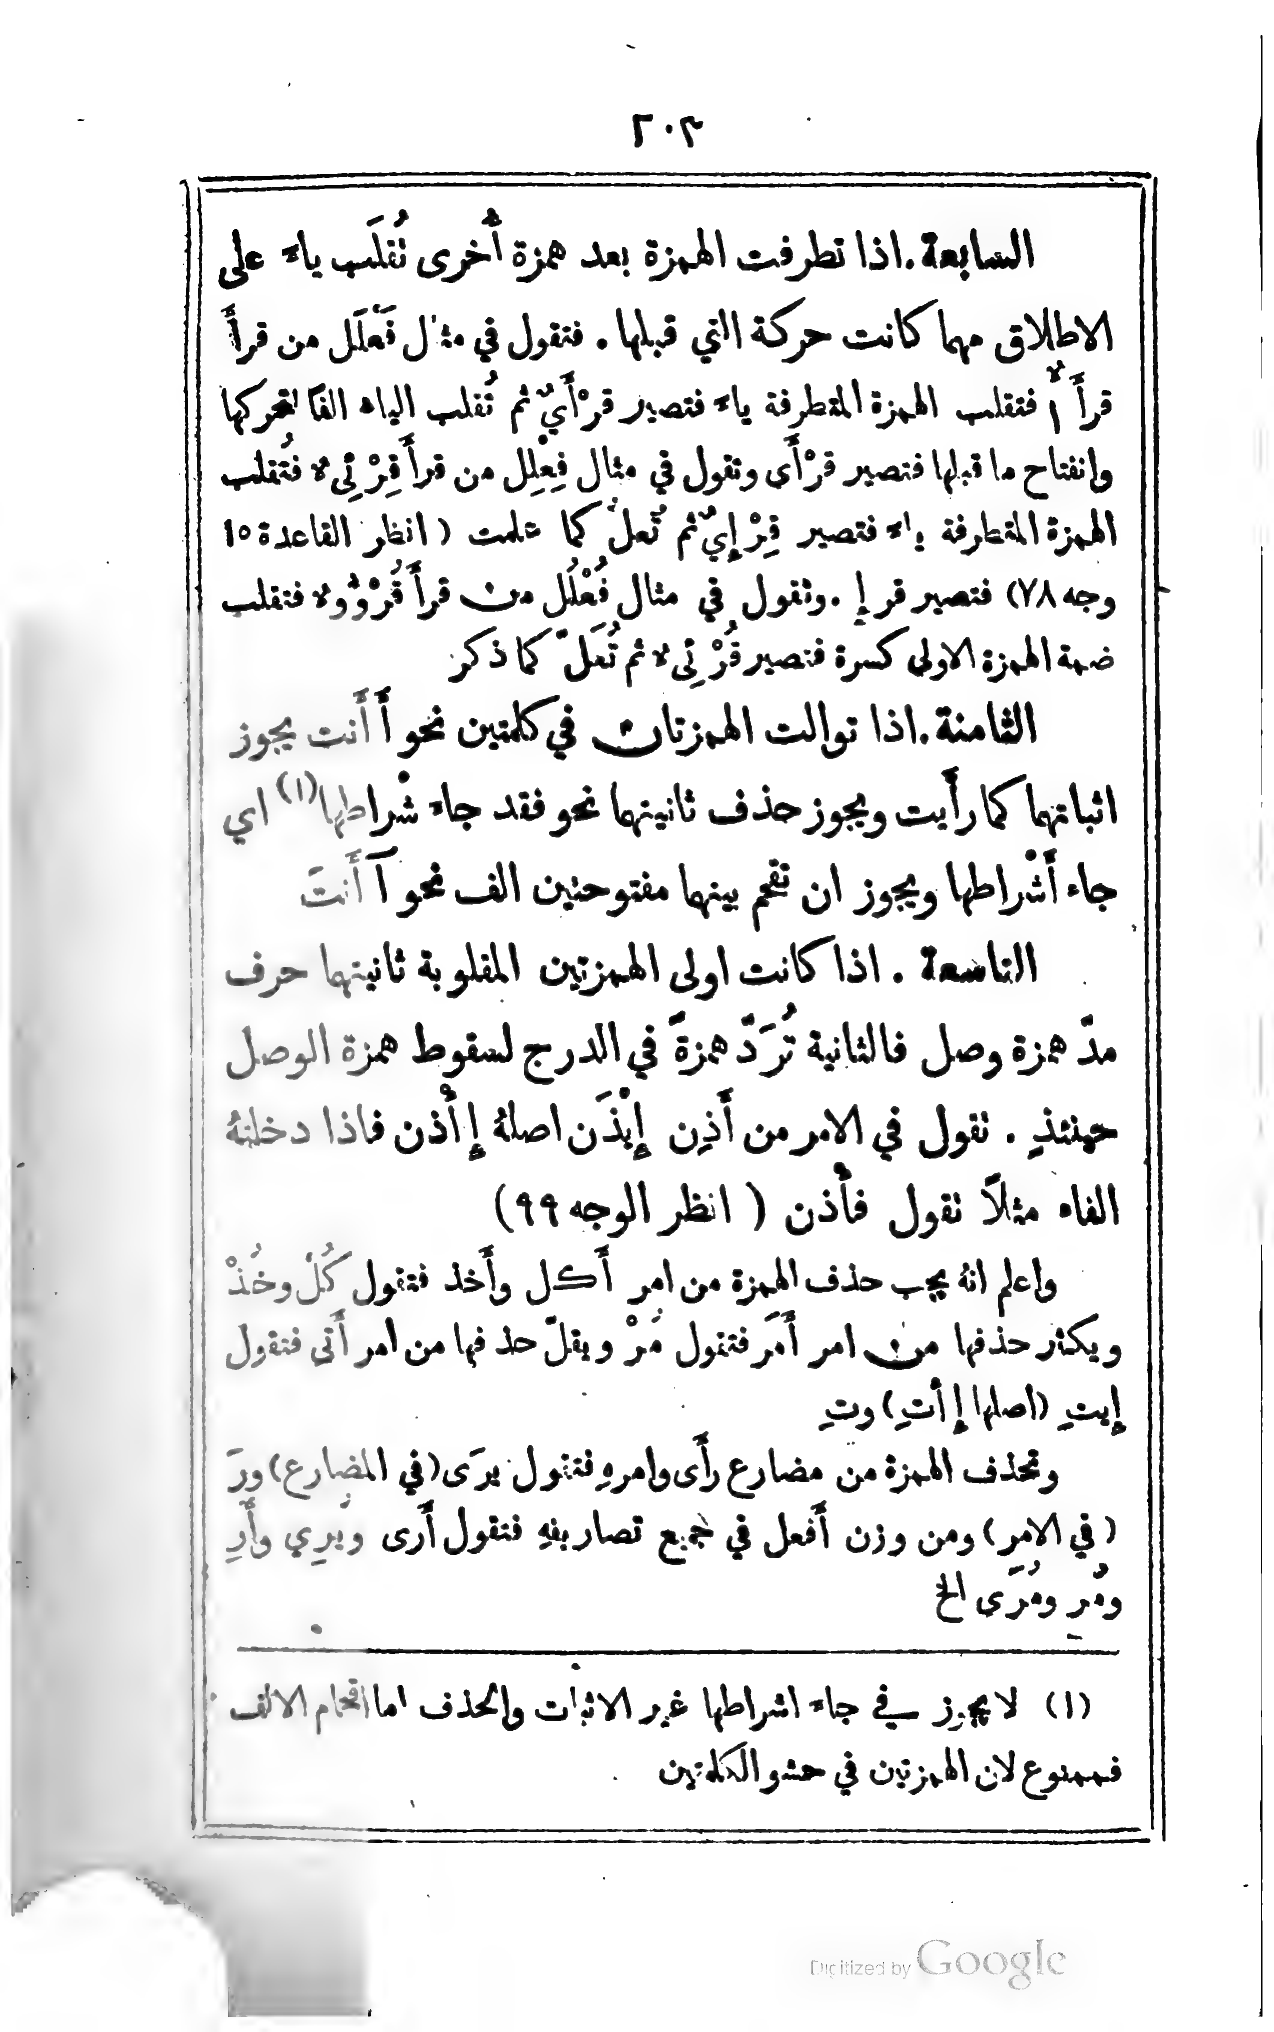 ٢٠٣
السابعة . اذا تطرفت الهمزة بعد همزة أُخرى تُقلَب ياءً على
الاطلاق مهما كانت حركة التي قبلها . فتقول في مثال فَعْلَل من قرأَ
قرأَأٌ فتقلب الهمزة المتطرفة ياءً فتصير قرْأَيٌ ثم تُقلب الياء الفًا لتحركها
وانفتاح ما قبلها فتصير قرْأَى وتقول في مثال فِعْلِل من قرأَ قِرْئِىءٌ فتُقلب
الهمزة المتطرفة ياءً فتصير قِرْإِيٌ ثم تُعلّ كما علمت ( انظر القاعدة ١٥
وجه ٧٨) فتصير قرإٍ . وتقول في مثال فُعْلُل من قرأَ قُرْؤُوءٌ فتقلب
ضمة الهمزة الاولى كسرة فتصير قُرْئِىءٌ ثم تُعَلّ كما ذكر
الثامنة . اذا توالت الهمزتان في كلمتين نحو أَ أَنت يجوز
اثباتهما كما رأَيت ويجوز حذف ثانيتهما نحو فقد جاءَ شْراطها (١) اي
جاء أَشْراطها ويجوز ان تقحم بينهما مفتوحتين الف نحو آ أَنتَ
التاسعة . اذا كانت اولى الهمزتين المقلوبة ثانيتهما حرف
مدّ همزة وصل فالثانية تُرَدّ همزةً في الدرج لسقوط همزة الوصل
حينئذٍ . تقول في الامر من أَذِن إِيْذَن اصلهُ إِأْذن فاذا دخلتهُ
الفاء مثلاً تقول فأْذن ( انظر الوجه ٩٩)
واعلم انهُ يجب حذف الهمزة من امر أَكل وأَخذ فتقول كُلْ وخُذْ
ويكثر حذفها من امر أَمَر فتقول مُرْ ويقلّ حذفها من امر أَتى فتقول
إِيتِ (اصلها إِأْتِ) وتِ
وتحذف الهمزة من مضارع رأَى وامرهِ فتقول يرَى (في المضارع) ورَ
(في الامر) ومن وزن أَفعل في جميع تصاريفهِ فتقول أَرى ويُرِي وأَرِ
ومُرٍ ومُرَى الخ
(١) لا يجوز في جاءَ اشراطها غير الاثبات والحذف اما اقحام الالف
فممنوع لان الهمزتين في حشو الكلمتين
Digitized by Google